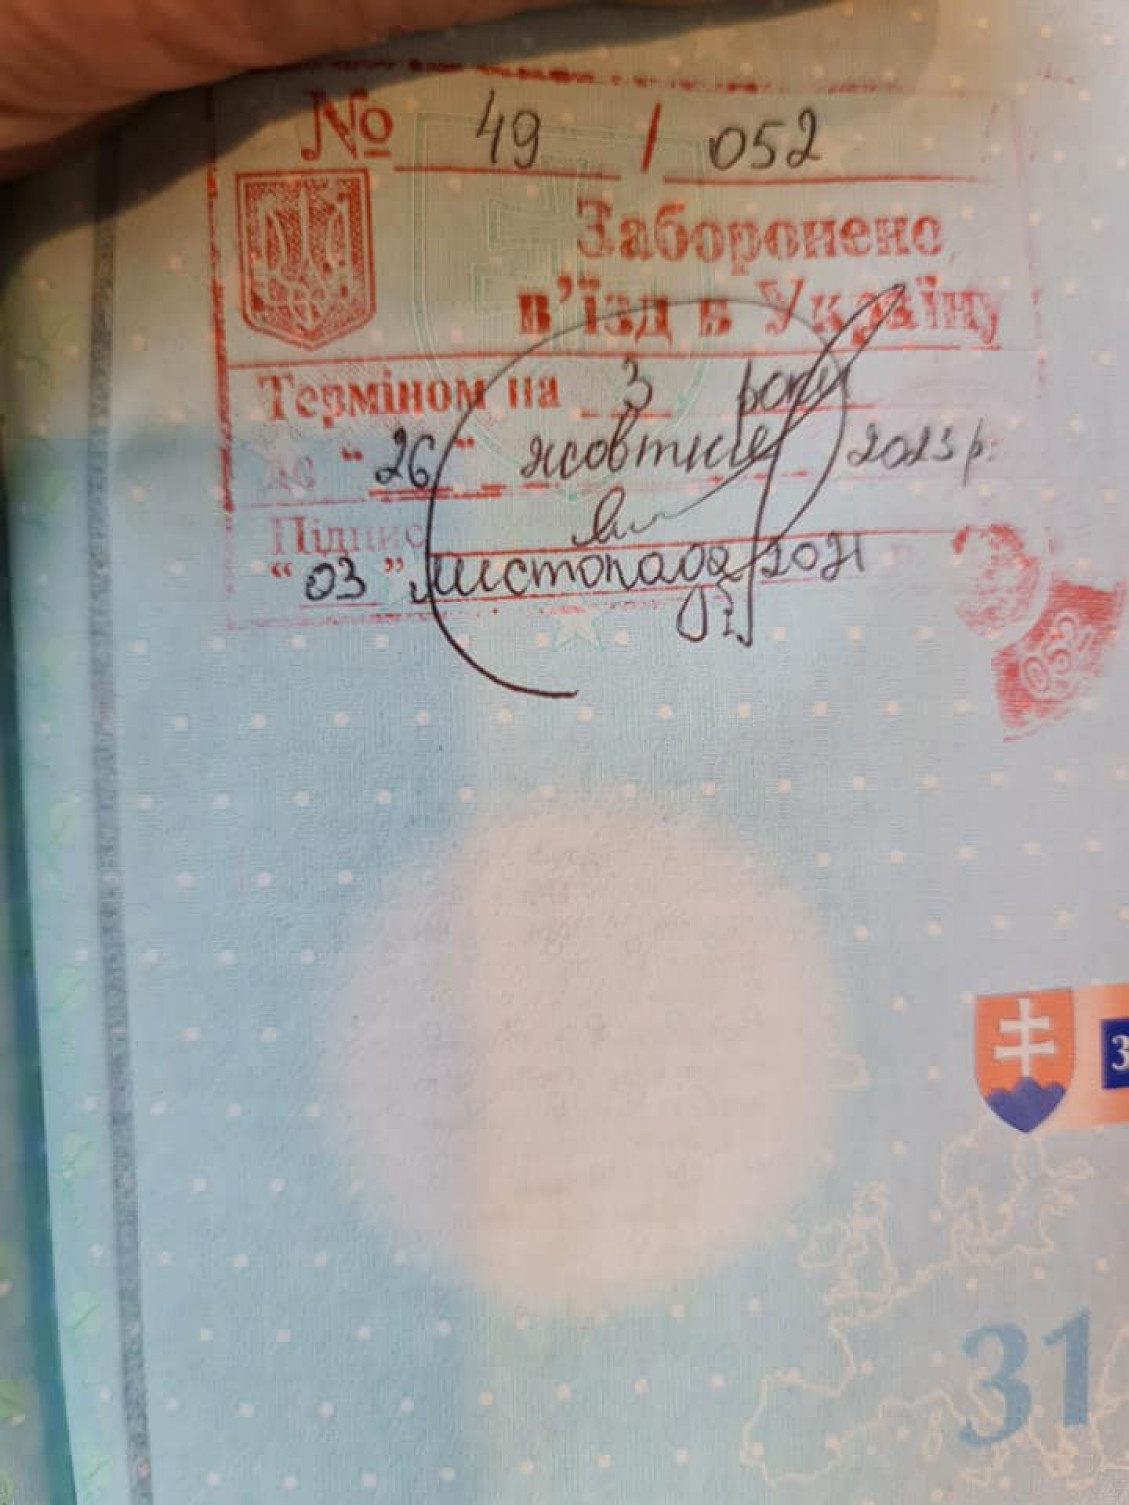 № 49 / 052
Заборонено
в'їзд в Україну
Терміном на 3 роки
До “26” жовтня 2023 р.
Підпис
“03” листопада 2021
052
3
31